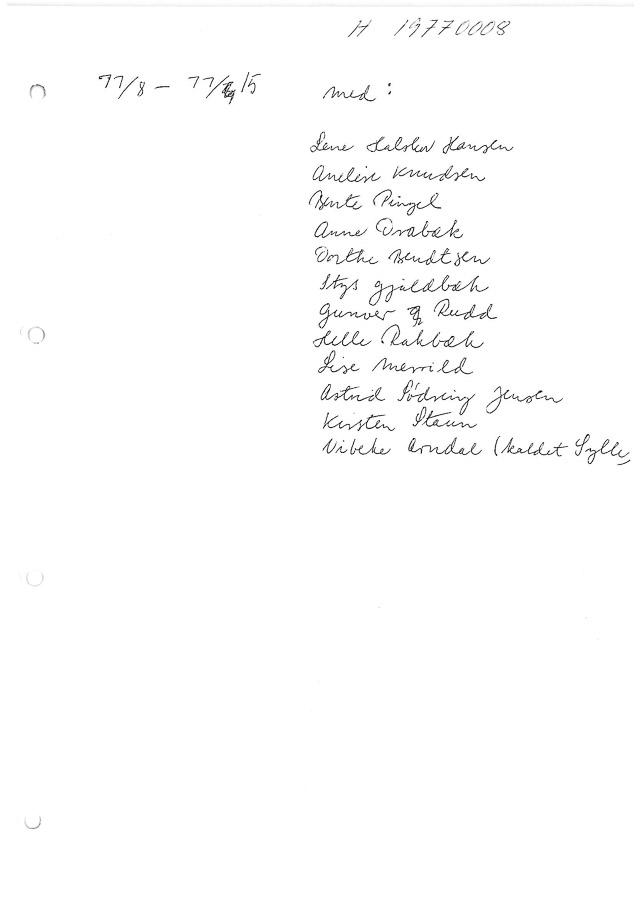 H 19770008
77/8 – 77/15 med :
Lene Halskov Hansen
Anelise Knudsen
Bente Pingel
Anne Drabæk
Dorthe Bendtsen
Stys gjaldbæk
Gunver Rudd
Helle Rahbæk
Lise Merrild
Astrid Södring Jensen
Kirsten Staun
Vibeke Arndal (kaldet Sylle,